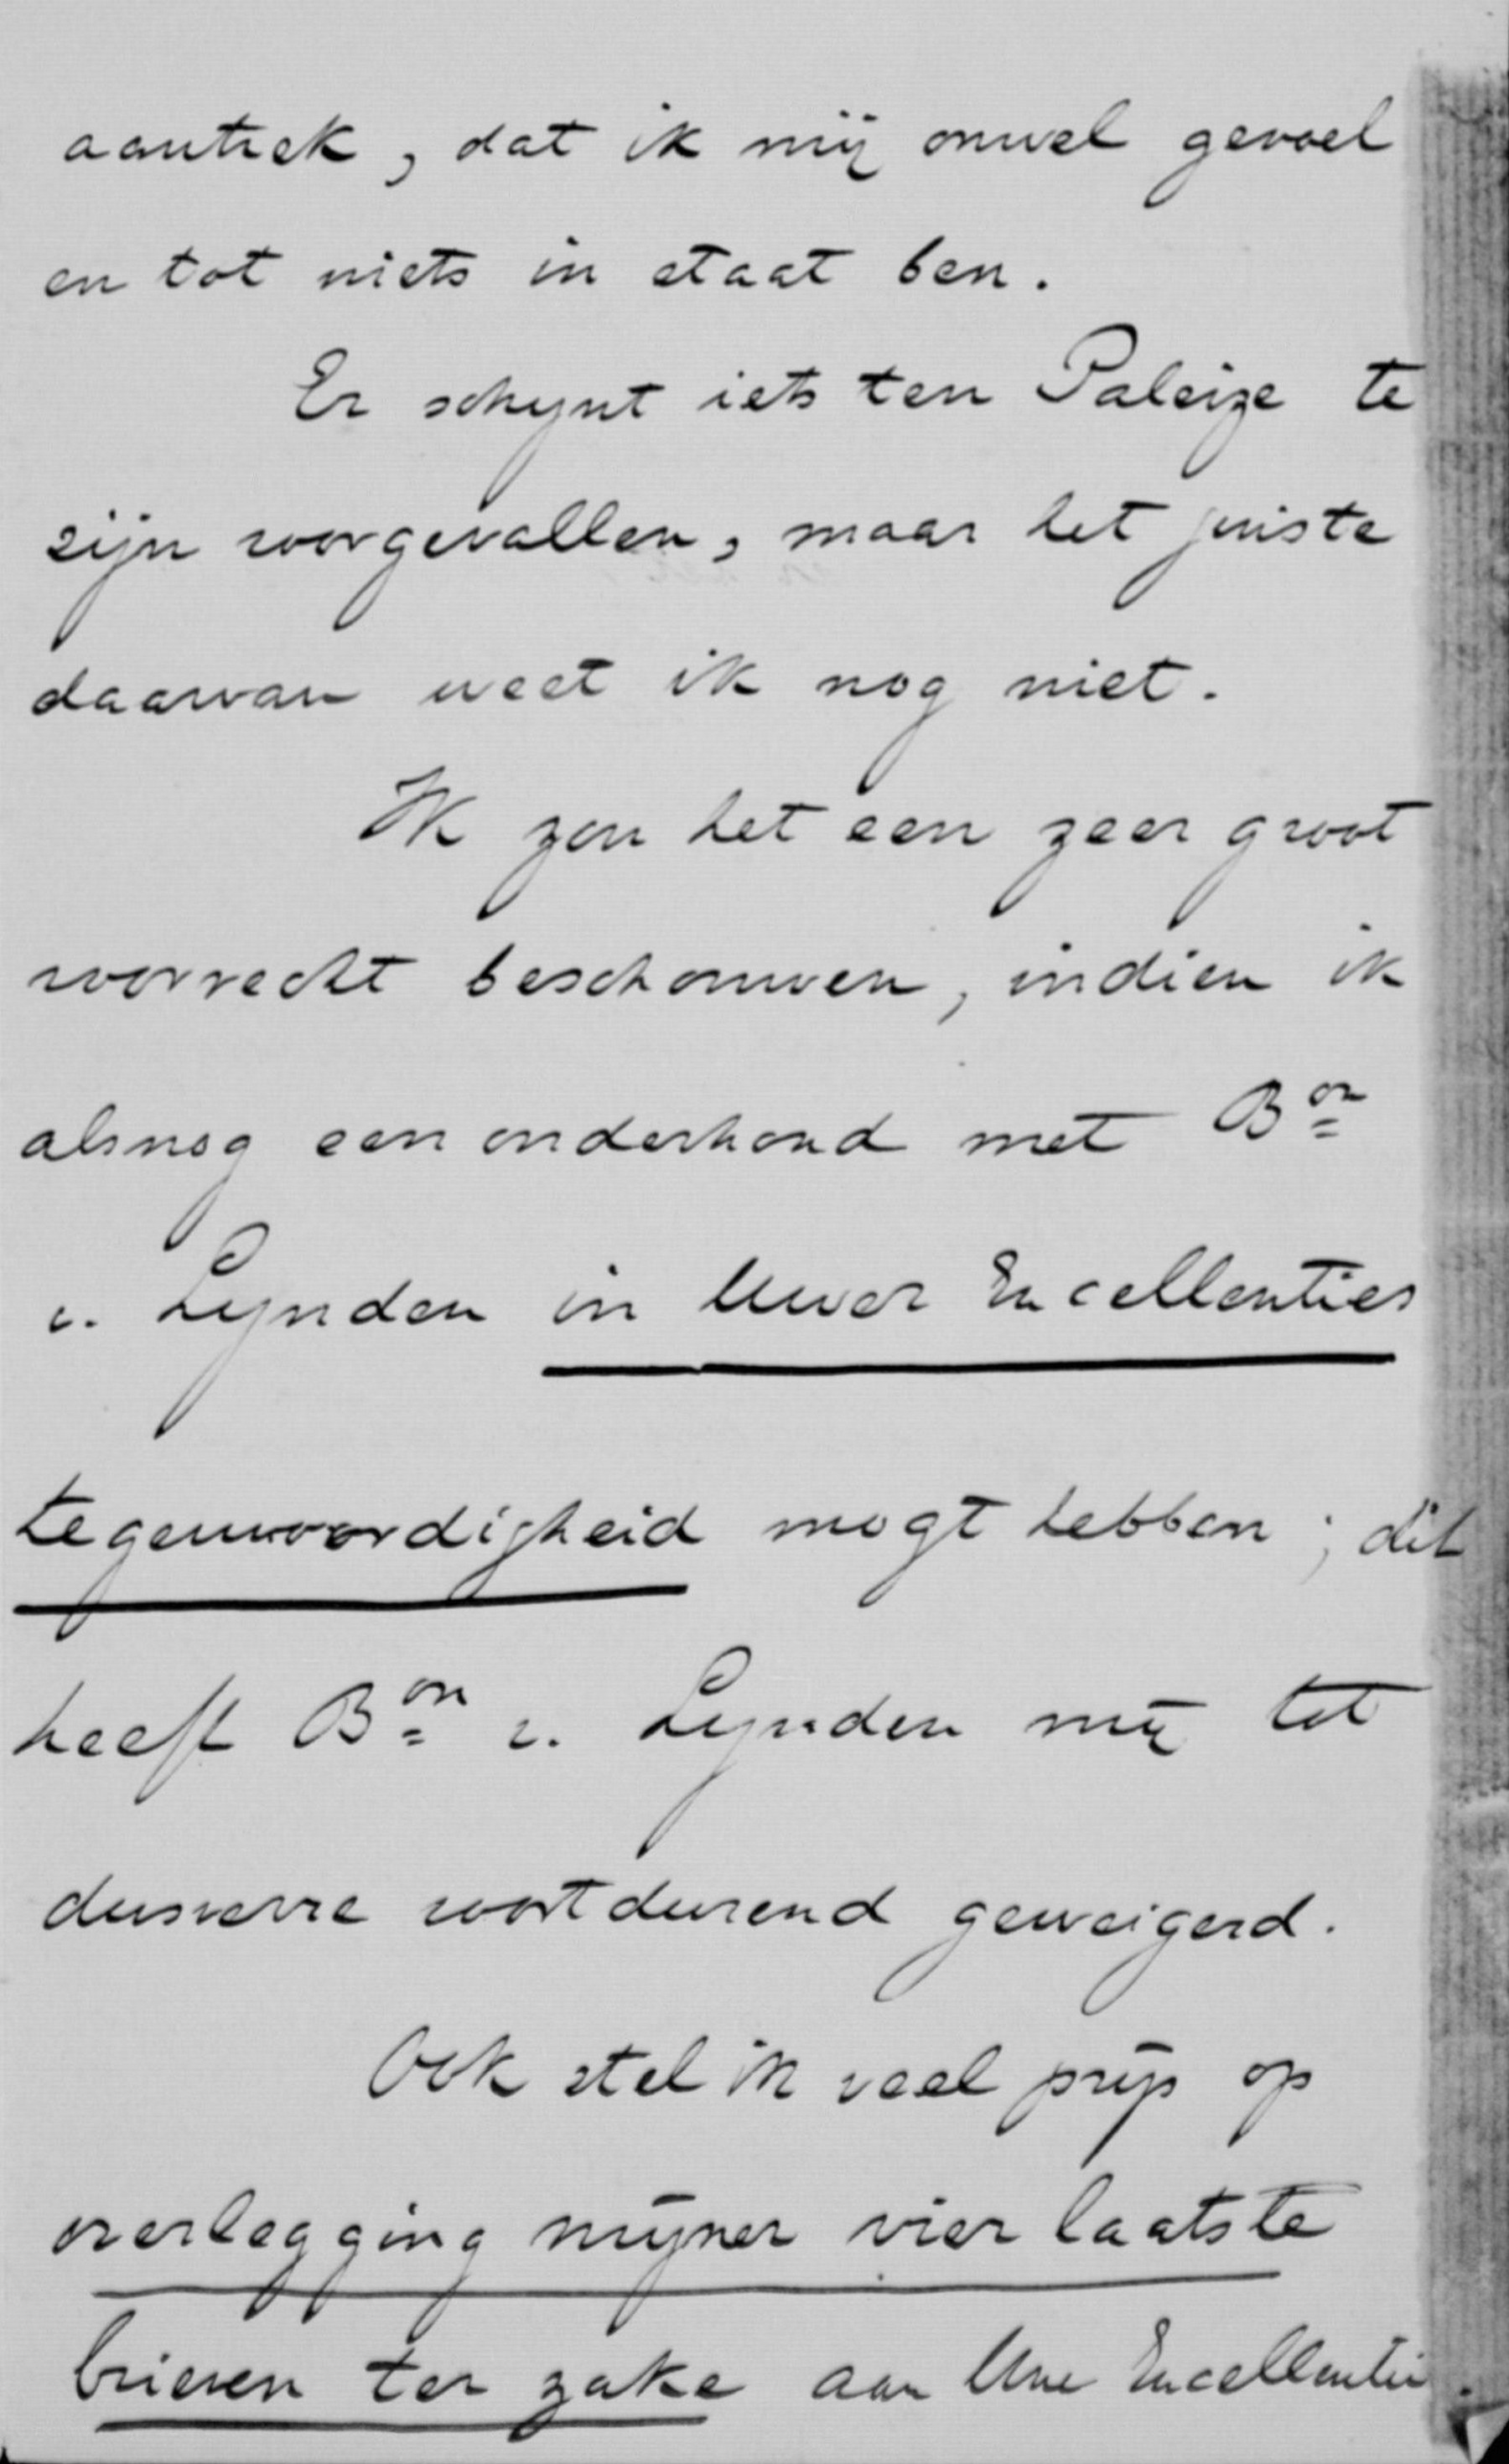 aantrek, dat ik mij onwel gevoel
en tot niets in staat ben.
Er schijnt iets ten Paleize te
zijn voorgevallen, maar het juiste
daarvan weet ik nog niet.
Ik zou het een zeer groot
voorrecht beschouwen, indien ik
alsnog een onderhoud met Bon
v. Lynden in Uwer Excellenties
tegenwoordigheid mogt hebben; dit
heeft Bon v. Lynden mij tot
dusverre voortdurend geweigerd.
Ook stel ik veel prijs op
overlegging mijner vier laatste
brieven ter zake aan Uwe Excellentie.